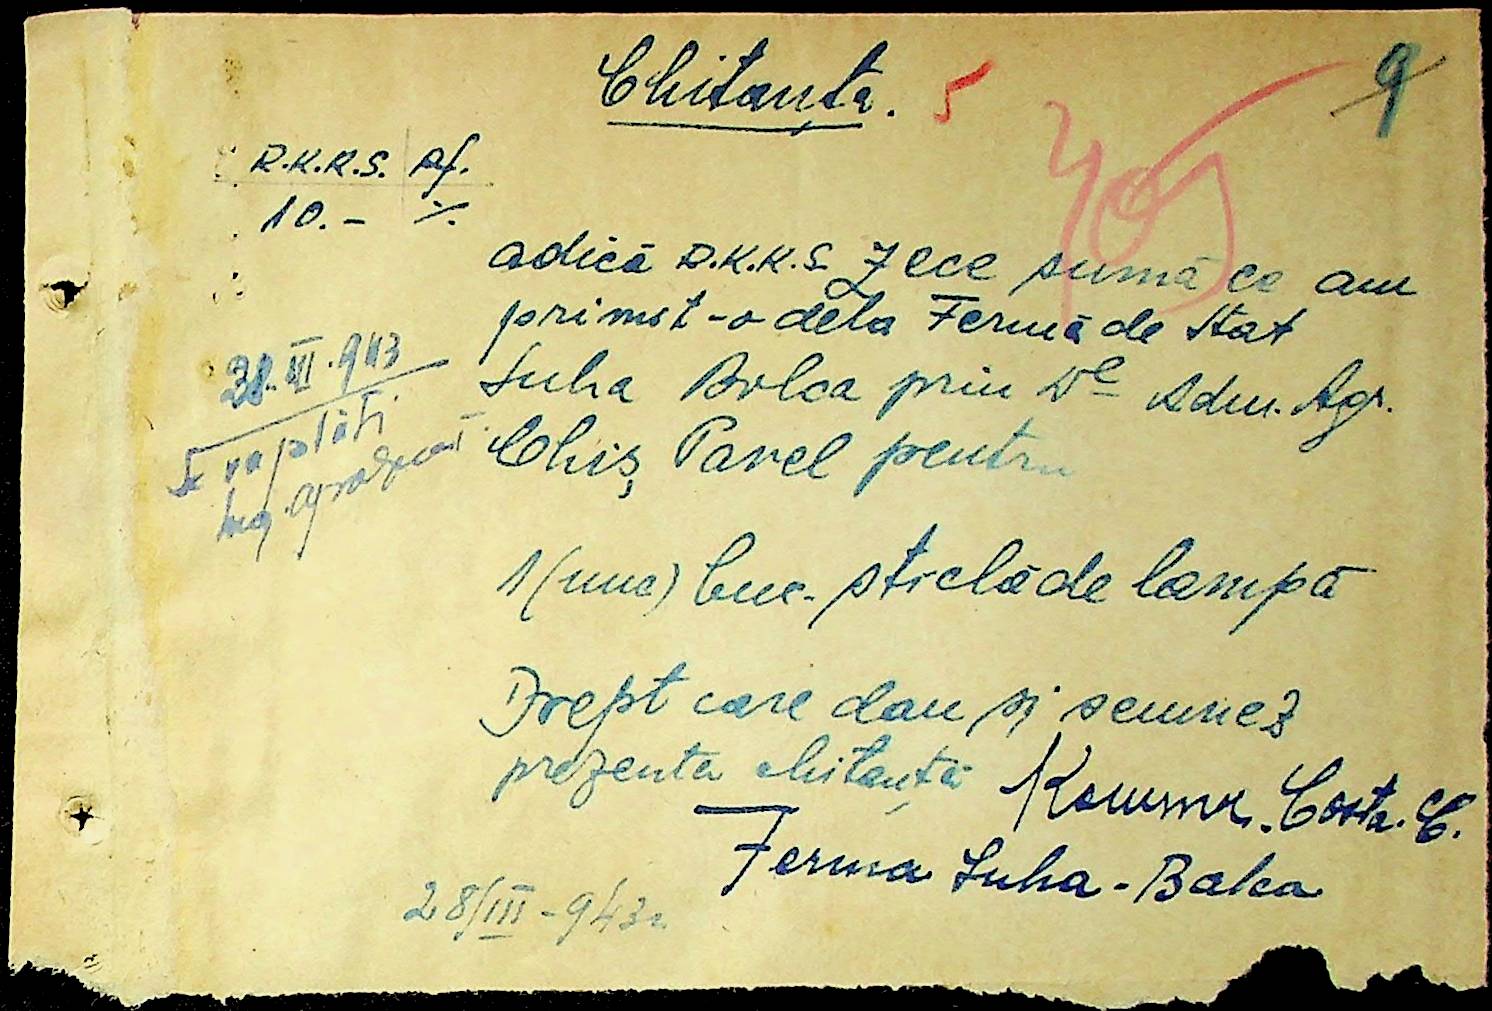 Chitanţă. 5
9
R.K.K.S. Pf.
10.- %.
adică R.K.K.S. Zece sumă ce am
primit-o dela Fermă de Stat
Suha Balca prin Dl Adm. Agr.
Chiş Pavel pentru
28.III.943
Se va plăti
Ing. agronom
1 (una) buc. sticlă de lampă
Drept care dau şi semnez
prezenta chitanţă
Costa. C.
Ferma Suha-Balca
28/III-943